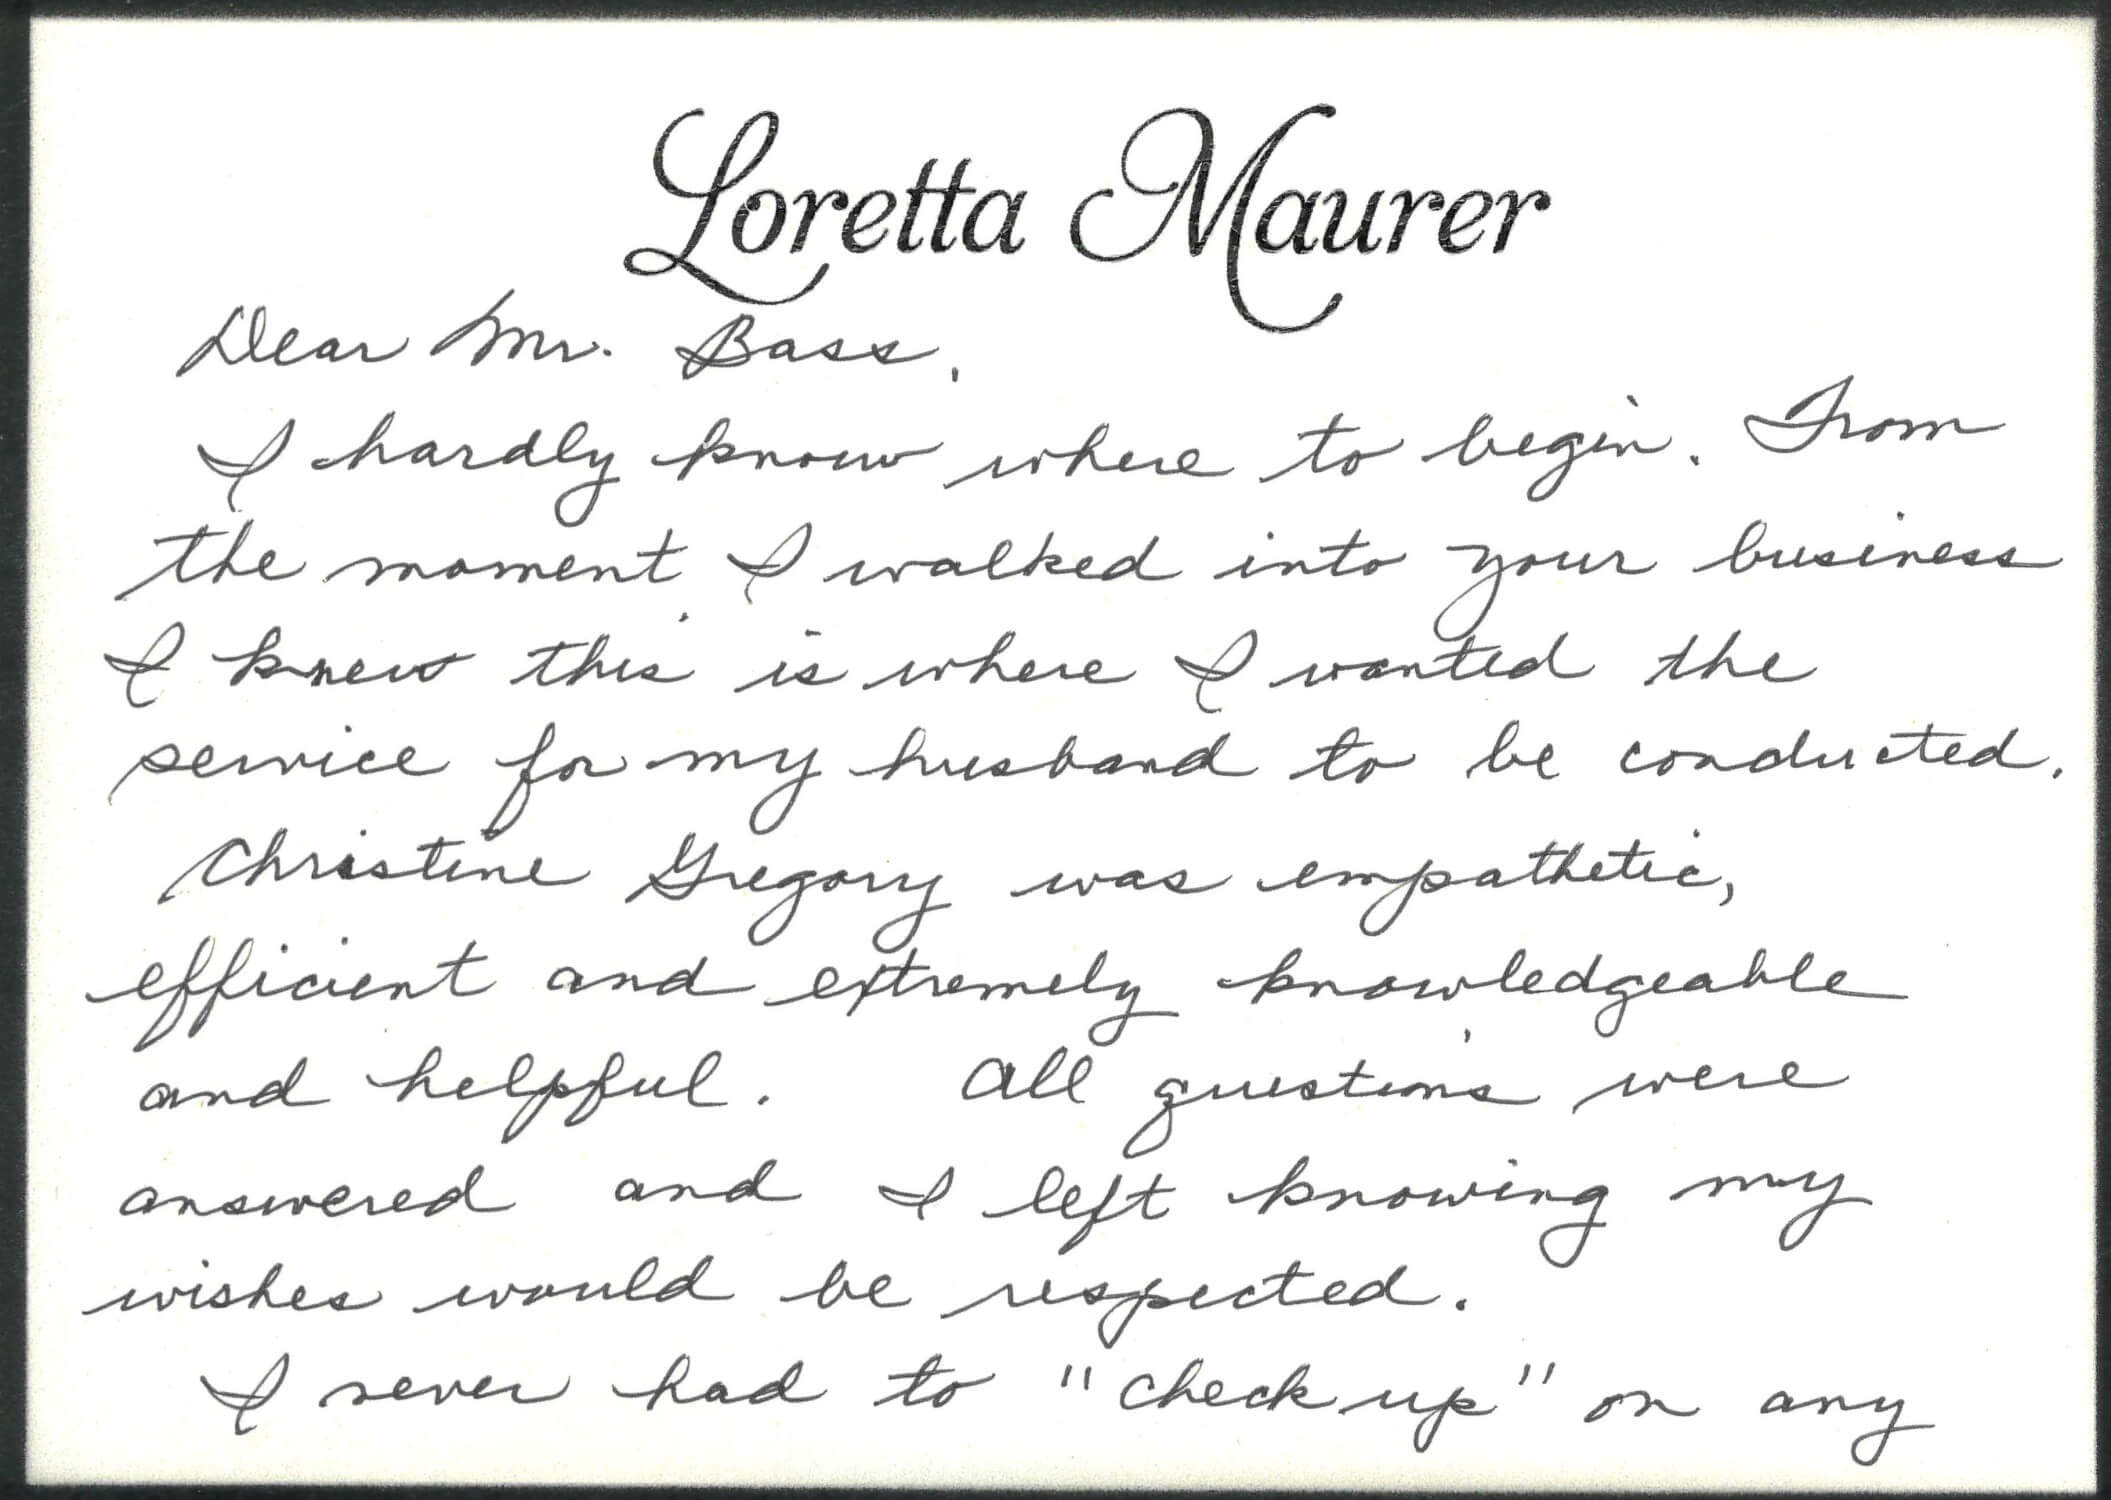 Loretta Maurer
Dear Mr. Bass,
I hardly know where to begin. From
the moment I walked into your business
I knew this is where I wanted the
service for my husband to be conducted.
Christine Gregory was empathetic,
efficient and extremely knowledgeable
and helpful. All questions were
answered and I left knowing my
wishes would be respected.
I never had to "check up" on any